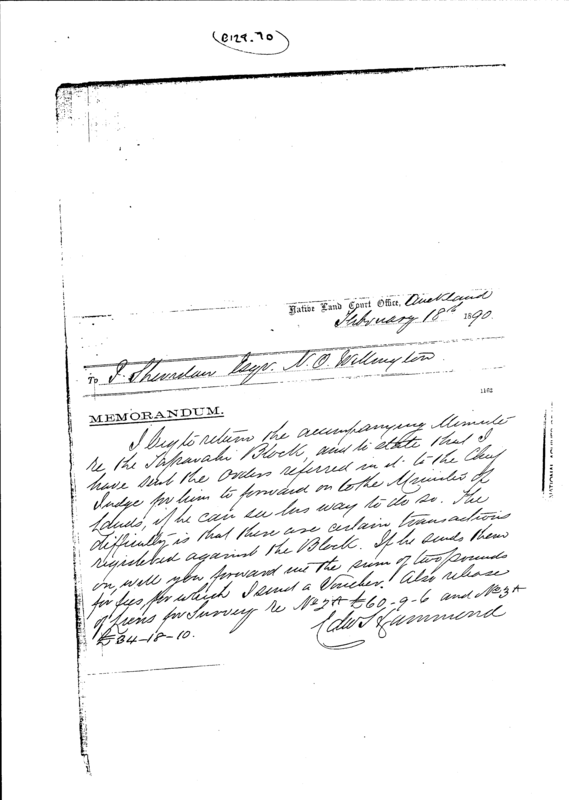 (C128.70)
Native Land Court Office, Auckland
February 18th 1890.
To P. Sheridan Esqr. N.O. Wellington
1162
MEMORANDUM.
I beg to return the accompanying Minute
re the Block, and to state that I
have sent the Orders referred in it to the Chief
Judge for him to forward on to the Minister of
Lands, if he can see his way to do so. The
difficulty is that there are certain transactions
registered against the Block. If he sends them
on, will you forward me the sum of two pounds
for fees for which I send a Voucher. Also release
of Liens for Survey re No 2A £60-9-6 and No 3A
£34-18-10.
Edw Hammond